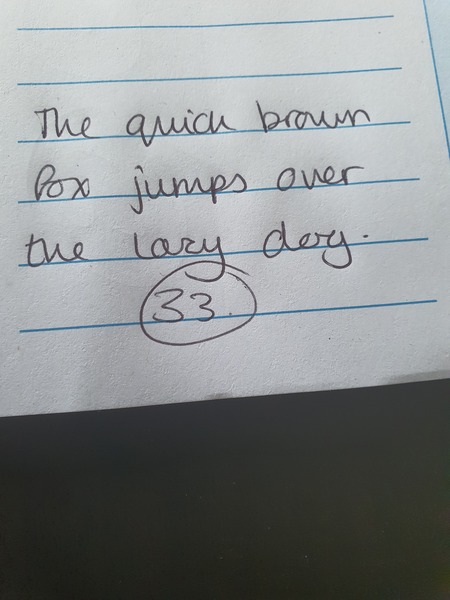 The quick brown
fox jumps over
the lazy dog.
33.